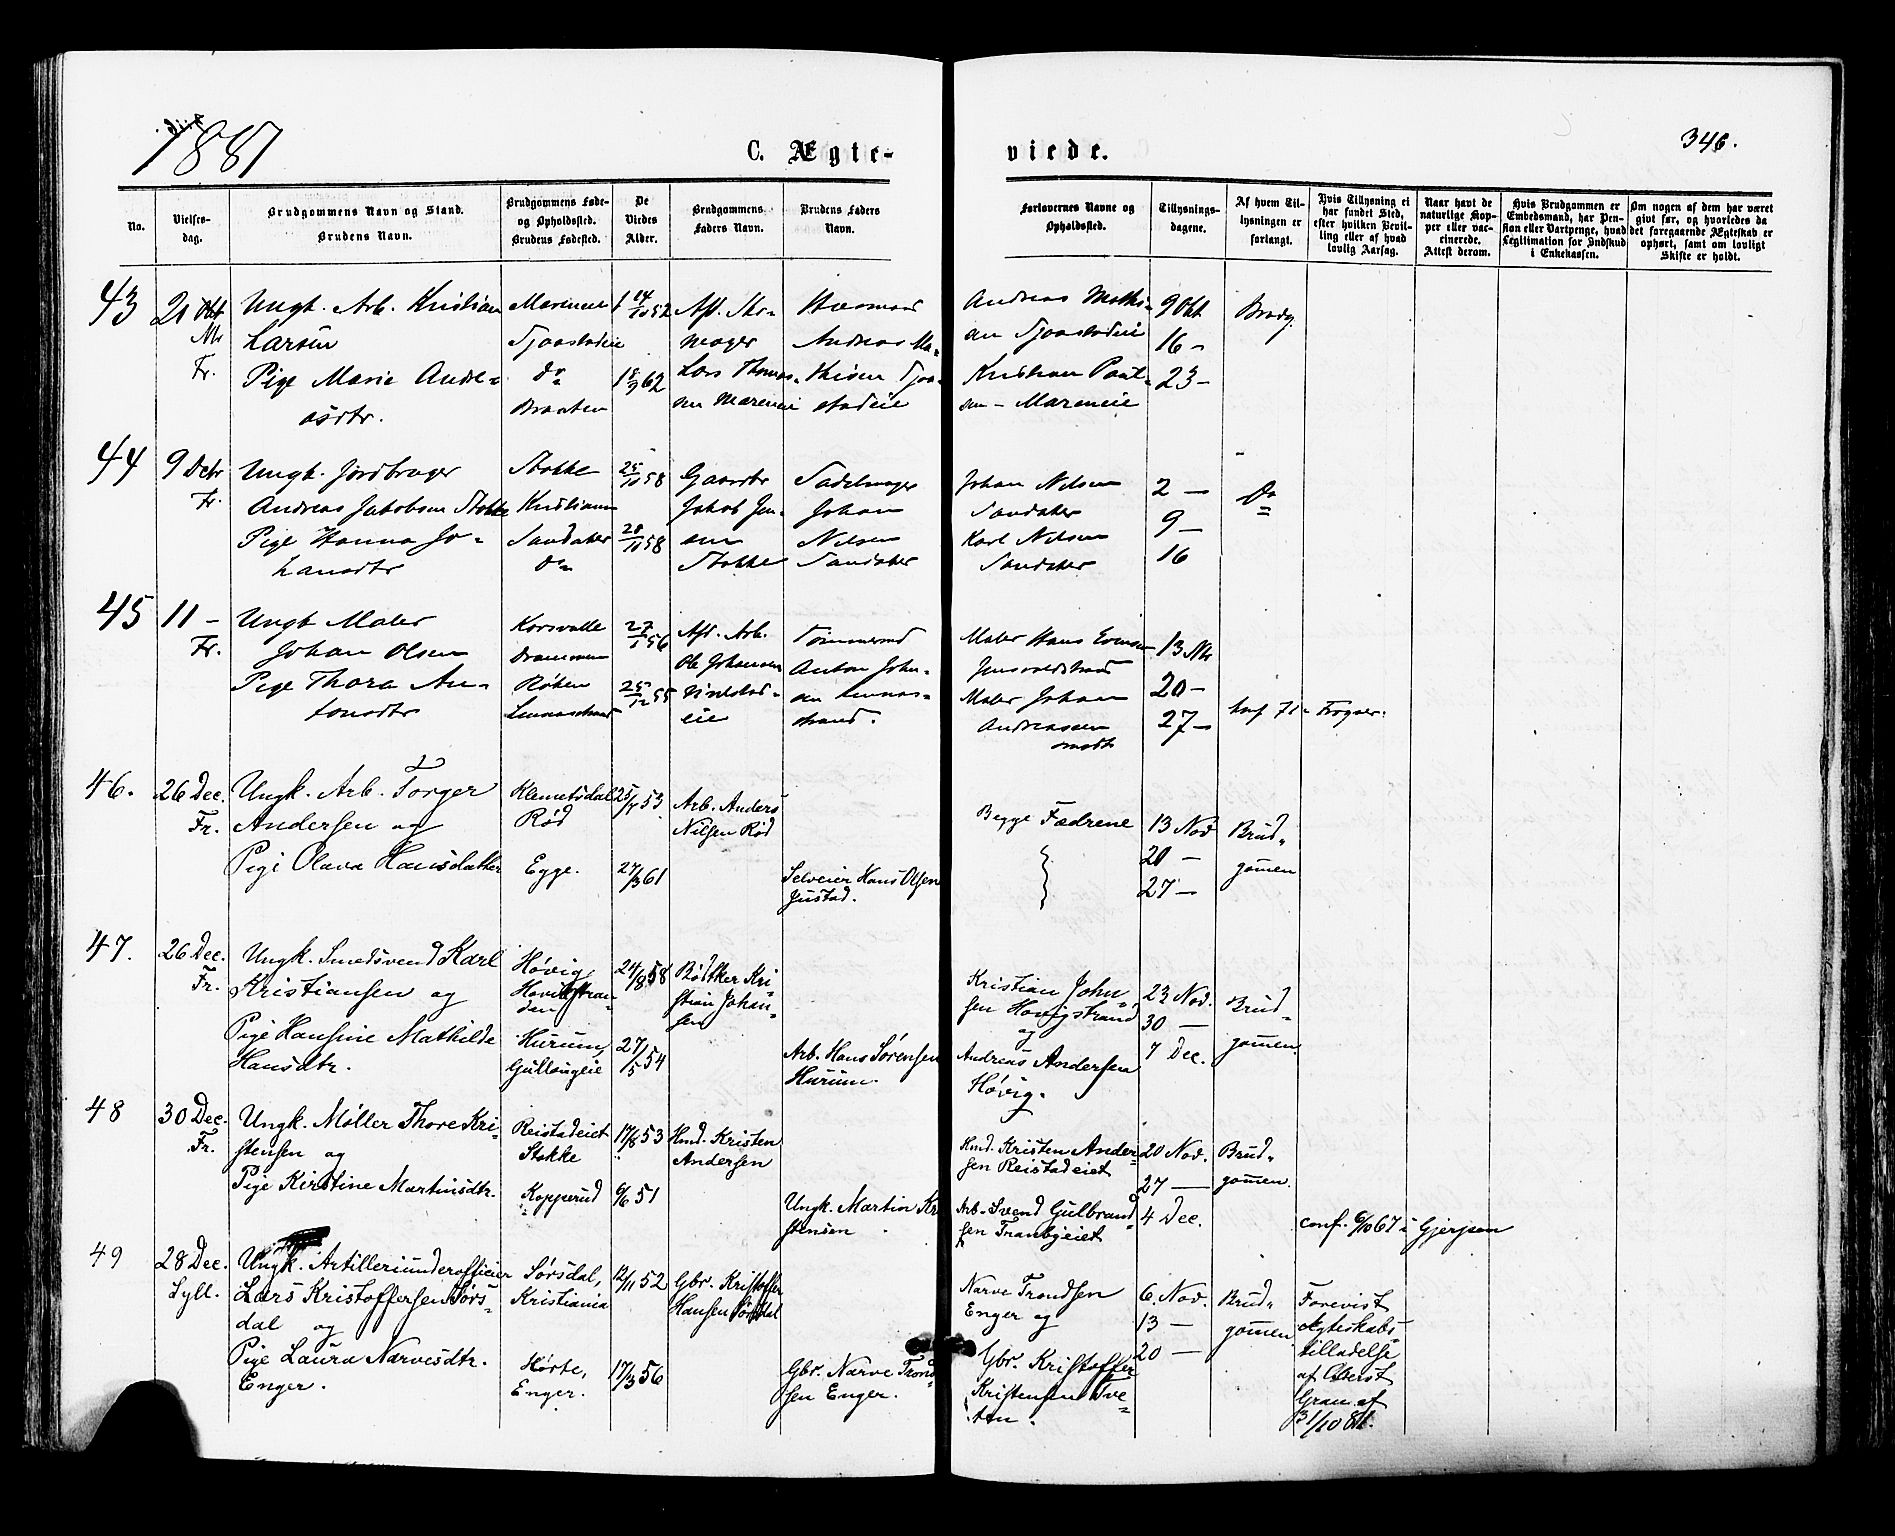 1881
C. Ægte-
viede.
346.
No.
Vielses-
dag.
Brudgommens Navn og Stand.
Brudens Navn.
Brudgommens Føde-
og Opholdssted.
Brudens Fødested.
De
Viedes
Alder.
Brudgommens
Faders Navn.
Brudens Faders
Navn.
Forlovernes Navne og
Opholdssted.
Tillysnings-
dagene.
Af hvem Til-
lysningen er
forlangt.
Hvis Tillysning ei
har fundet Sted,
efter hvilken Bevil-
ling eller af hvad
lovlig Aarsag.
Naar havt de
naturlige Kop-
per eller vac-
cinerede.
Attest derom.
Hvis Brudgommen er
Embedsmand, har Pen-
sion eller Vartpenge, hvad
Legitimation for Indskud
i Enkekassen.
Om nogen af dem har været
givt før, og hvorledes da
det foregaaende Ægteskab er
ophørt, samt om lovligt
Skifte er holdt.
43
21 Okt
Fr.
Ungk. Arb. Kristian
Larsen
Pige Marie Andre-
asdtr.
Do
Braaten
Afd. Sko-
mager
Lars Thomas-
Husmand
Andreas Ma-
Andreas Mathi-
Kristian Paul-
sen
9 Okt
16 -
23 -
Brudg.
44
9 Decbr
Fr.
Ungk. Jordbruger
Andreas Jakobsen Stokke
Pige Hanna Jo-
hansdtr
Stokke
Kristiania
Sandaker
Do
25/10 58
Gaardbr
Jakob Jen-
sen
Stokke
Sadelmager
Johan
Nilsen
Sandaker
Johan Nilsen
Sandaker
Karl Nilsen
Sandaker
2 -
9 -
16
Do
45
11 -
Fr.
Ungk Maler
Johan Olsen
Pige Thora An-
tonsdtr
Korsvolle
Drammen
Røken
25/12 55
Afd. Arb.
Ole Johansen
eie
Tømmermd
Anton John-
strand.
Maler Hans
Maler Johan
Andreassen
13 Nb
20 -
27 -
conf 71
46.
26 Dec.
Fr.
Ungk. Arb. Torger
Andersen og
Pige Olava Hansdatter
Klemetsdal
Rød
Egge.
27/3 61
Arb. Anders
Nilsen Rød
Selveier Hans Olsen
Justad.
Begge Fædrene
13 Nov
20 -
27 -
Brud-
gomen
47.
26 Dec.
Fr.
Ungk. Smedsvend Karl
Kristiansen og
Pige Hansine Mathilde
Hansdtr.
Høvig,
Hovikstran-
den
Hurum,
Gullaugeie
24/8 58
27/5 54
Bødtker Kri-
stian Johan-
sen
Arb. Hans Sørensen
Hurum.
Kristian John-
sen Høvigstrand
og
Andreas Andersen
Høvig.
23 Nov.
30 -
7 Dec.
Brud-
gomen.
48
30 Dec.
Fr.
Ungk. Møller Thore Kri-
stensen og
Pige Kirstine Martinsdtr.
Reistadeiet
Stokke
Kopperud
17/8 53
6/6 51
Hmd. Kristen
Andersen
Ungk. Martin Kri
stensen
Hmd. Kristen Ander-
sen Reistadeiet
Arb. Svend Gulbrand-
sen Tranbyeiet
20 Nov.
27 -
4 Dec.
Brud-
gomen.
conf. 6/10 67 i Gjerpen
49
28 Dec.
Syll.
Ungk. Artilleriunderofficier
Lars Kristoffersen Sørs-
dal og
Pige Laura Narvesdtr.
Enger.
Sørsdal,
Kristiania
Hørte,
Enger.
12/11 52
17/3 56
Gbr. Kristoffer
Hansen Sørsdal
Gbr. Narve Trond-
sen Enger.
Narve Trondsen
Enger og
Gbr. Kristoffer
Kristensen Tve-
ten.
6. Nov.
13 -
20 -
Brud-
gomen
Forevist
Ægteskabs-
tilladelse
af Oberst
Gran af
31/10 81.